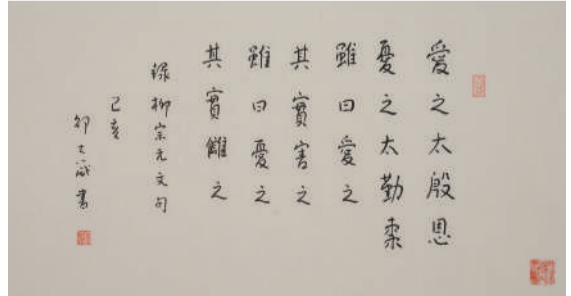 愛之太殷恩
憂之太勤
雖曰愛之
其實害之
雖曰憂之
其實雠之
録柳宗元文句
己亥
邵大箴書